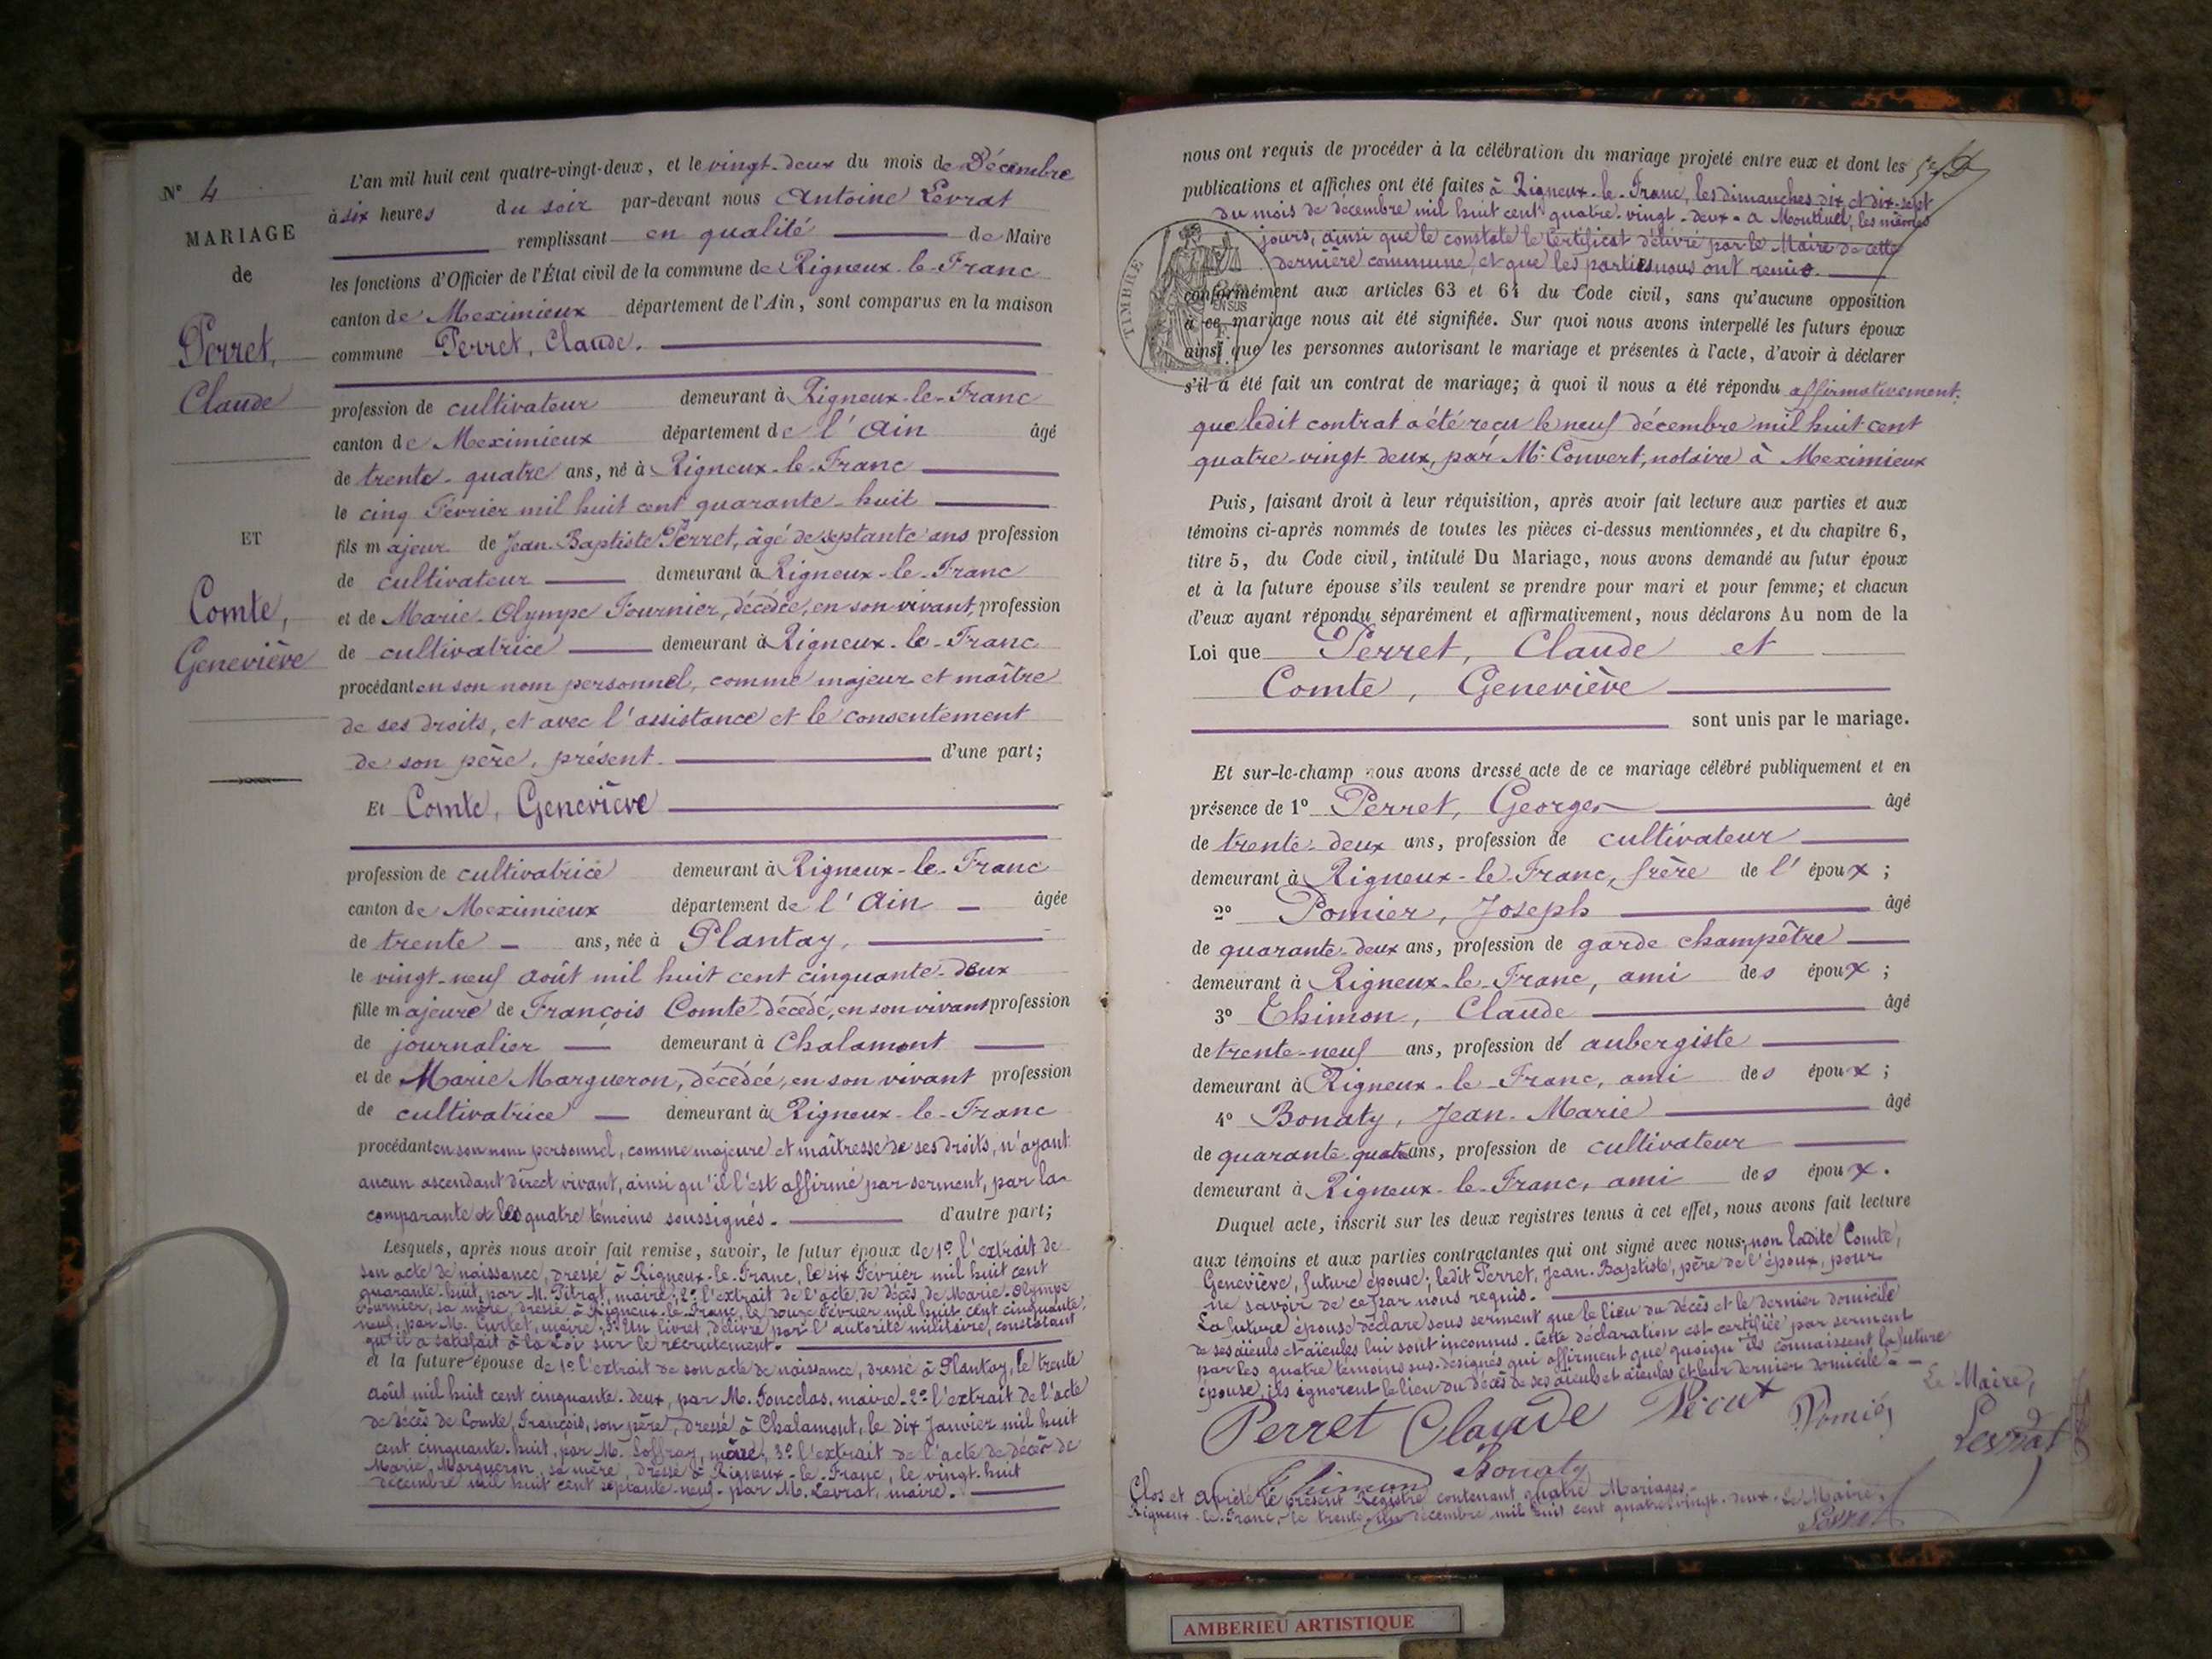 N° 4
MARIAGE
de
Perret,
Claude
ET
Comte,
Geneviève
L'an mil huit cent quatre-vingt-deux, et le vingt-deux du mois de Décembre
à six heures du soir par-devant nous Antoine Levrat
remplissant en qualité de Maire
les fonctions d'Officier de l'État civil de la commune de Rigneux-le-Franc
canton de Meximieux département de l'Ain, sont comparus en la maison
commune Perret, Claude.
profession de cultivateur demeurant à Rigneux-le-Franc
canton de Meximieux département de l'Ain âgé
de trente-quatre ans, né à Rigneux-le-Franc
le cinq Février mil huit cent quarante-huit
fils majeur de Jean-Baptiste Perret, âgé de septante ans profession
de cultivateur demeurant à Rigneux-le-Franc
et de Marie-Olympe Fournier, décédée, en son vivant, profession
de cultivatrice demeurant à Rigneux-le-Franc
procédant en son nom personnel, comme majeur et maître
de ses droits, et avec l'assistance et le consentement
de son père, présent. d'une part;
Et Comte, Geneviève
profession de cultivatrice demeurant à Rigneux-le-Franc
canton de Meximieux département de l'Ain âgée
de trente ans, née à Plantay,
le vingt-neuf août mil huit cent cinquante-deux
fille majeure de François Comte décédé, en son vivant profession
de journalier demeurant à Chalamont
et de Marie Margueron, décédée, en son vivant profession
de cultivatrice demeurant à Rigneux-le-Franc
procédant en son nom personnel, comme majeure et maîtresse de ses droits, n'ayant
aucun ascendant direct vivant, ainsi qu'il l'est affirmé par serment, par la
comparante et les quatre témoins soussignés. d'autre part;
Lesquels, après nous avoir fait remise, savoir, le futur époux de 1° l'extrait de
son acte de naissance, dressé à Rigneux-le-Franc, le six Février mil huit cent
quarante-huit, par M. Pitrat, maire; 2° l'extrait de l'acte de décès de Marie-Olympe
Fournier, sa mère, dressé à Rigneux-le-Franc, le douze Février mil huit cent cinquante-
neuf, par M. maire; 3° Un livret, délivré par l'autorité militaire, constatant
qu'il a satisfait à la Loi sur le recrutement.
et la future épouse de 1° l'extrait de son acte de naissance, dressé à Plantay, le trente
août mil huit cent cinquante-deux, par M. Foncelas, maire. 2° l'extrait de l'acte
de décès de Comte, François, son père, dressé à Chalamont, le dix Janvier mil huit
cent cinquante-huit, par M. maire, 3° l'extrait de l'acte de décès de
Marie Margueron, sa mère, dressé à Rigneux-le-Franc, le vingt-huit
décembre mil huit cent septante-neuf par M. Levrat, maire.
nous ont requis de procéder à la célébration du mariage projeté entre eux et dont les
publications et affiches ont été faites à Rigneux-le-Franc, les dimanches dix et dix-sept
du mois de décembre mil huit cent quatre-vingt-deux à Montluel, les mêmes
jours, ainsi que le constate le Certificat délivré par le Maire de cette
dernière commune, et que les parties nous ont remis.
TIMBRE
conformément aux articles 63 et 64 du Code civil, sans qu'aucune opposition
à ce mariage nous ait été signifiée. Sur quoi nous avons interpellé les futurs époux
ainsi que les personnes autorisant le mariage et présentes à l'acte, d'avoir à déclarer
s'il a été fait un contrat de mariage; à quoi il nous a été répondu affirmativement.
que ledit contrat a été reçu le neuf décembre mil huit cent
quatre-vingt-deux, par Me Convert, notaire à Meximieux
Puis, faisant droit à leur réquisition, après avoir fait lecture aux parties et aux
témoins ci-après nommés de toutes les pièces ci-dessus mentionnées, et du chapitre 6,
titre 5, du Code civil, intitulé Du Mariage, nous avons demandé au futur époux
et à la future épouse s'ils veulent se prendre pour mari et pour femme; et chacun
d'eux ayant répondu séparément et affirmativement, nous déclarons Au nom de la
Loi que Perret, Claude et
Comte, Geneviève
sont unis par le mariage.
Et sur-le-champ nous avons dressé acte de ce mariage célébré publiquement et en
présence de 1° Perret, Georges âgé
de trente-deux ans, profession de cultivateur
demeurant à Rigneux-le-Franc, frère de l'époux;
2° Pomier, Joseph âgé
de quarante-deux ans, profession de garde champêtre
demeurant à Rigneux-le-Franc, ami des époux;
3° Thimon, Claude âgé
de trente-neuf ans, profession de aubergiste
demeurant à Rigneux-le-Franc, ami des époux;
4° Bonaty, Jean-Marie âgé
de quarante-quatre ans, profession de cultivateur
demeurant à Rigneux-le-Franc, ami des époux.
Duquel acte, inscrit sur les deux registres tenus à cet effet, nous avons fait lecture
aux témoins et aux parties contractantes qui ont signé avec nous; non ladite Comte,
Geneviève, future épouse; ledit Perret, Jean-Baptiste, père de l'époux, pour
ne savoir de ce par nous requis.
La future épouse déclare sous serment que le lieu du décès et le dernier domicile
de ses aïeuls et aïeules lui sont inconnus. Cette déclaration est certifiée par serment
par les quatre témoins sus-désignés qui affirment que quoiqu'ils connaissent la future
épouse, ils ignorent le lieu du décès de ses aïeuls et aïeules et leur dernier domicile.
Le Maire,
Perret Claude Pomier Levrat
Thimon Bonaty
Clos et arrêté le présent Registre contenant quatre Mariages.
Rigneux-le-Franc, le trente un décembre mil huit cent quatre-vingt-deux. Le Maire,
Levrat
AMBERIEU ARTISTIQUE